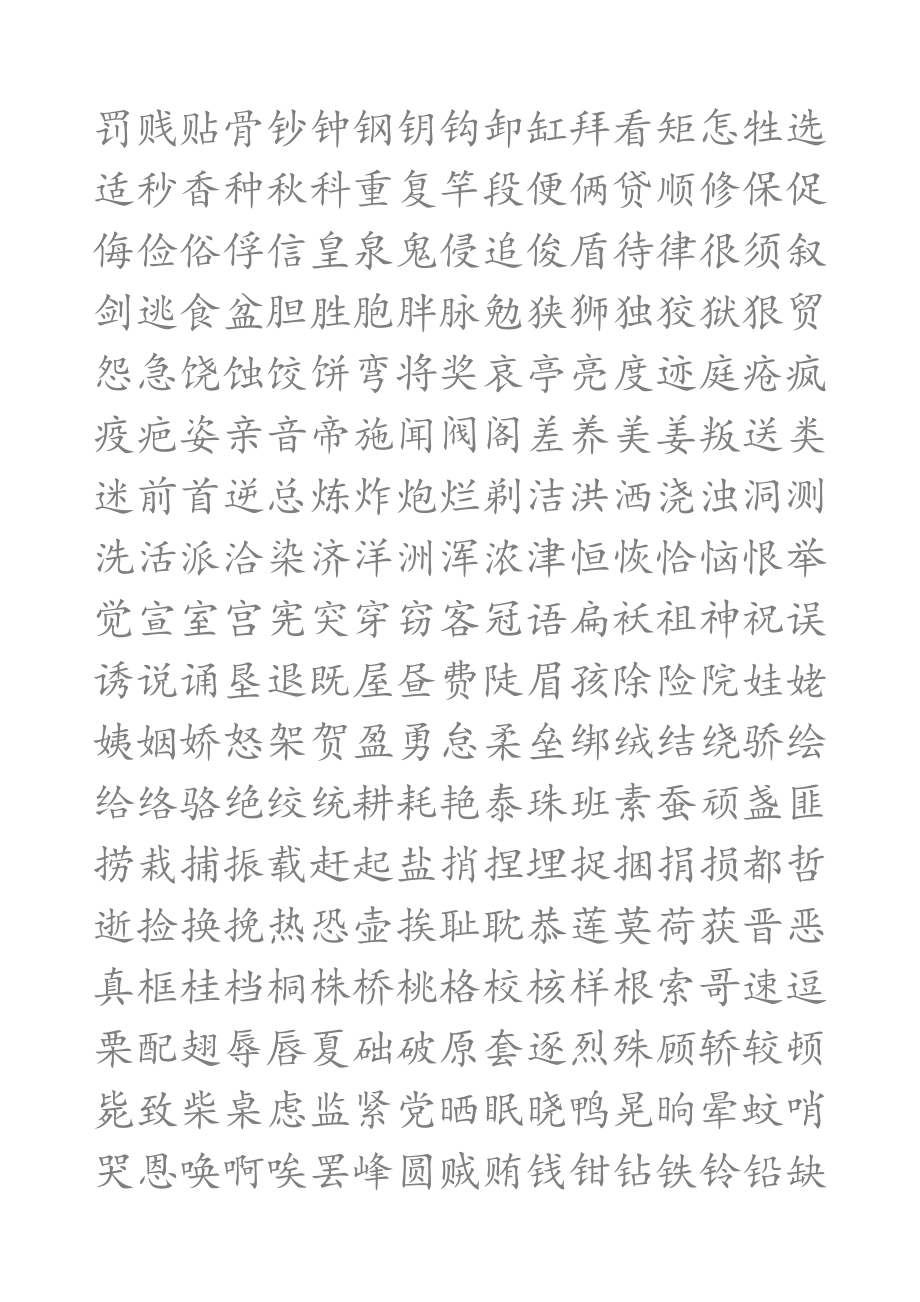 罚贱贴骨钞钟钢钥钩卸缸拜看矩怎牲选
适秒香种秋科重复竿段便俩贷顺修保促
侮俭俗俘信皇泉鬼侵追俊盾待律很须叙
剑逃食盆胆胜胞胖脉勉狭狮独狡狱狠贸
怨急饶蚀饺饼弯将奖哀亭亮度迹庭疮疯
疫疤姿亲音帝施闻阀阁差养美姜叛送类
迷前首逆总炼炸炮烂剃洁洪洒浇浊洞测
洗活派洽染济洋洲浑浓津恒恢恰恼恨举
觉宣室宫宪突穿窃客冠语扁袄祖神祝误
诱说诵垦退既屋昼费陡眉孩除险院娃姥
姨姻娇怒架贺盈勇怠柔垒绑绒结绕骄绘
给络骆绝绞统耕耗艳泰珠班素蚕顽盏匪
捞栽捕振载赶起盐捎捏埋捉捆捐损都哲
逝捡换挽热恐壶挨耻耽恭莲莫荷获晋恶
真框桂档桐株桥桃格校核样根索哥速逗
栗配翅辱唇夏础破原套逐烈殊顾轿较顿
毙致柴桌虑监紧党晒眠晓鸭晃晌晕蚊哨
哭恩唤啊唉罢峰圆贼贿钱钳钻铁铃铅缺